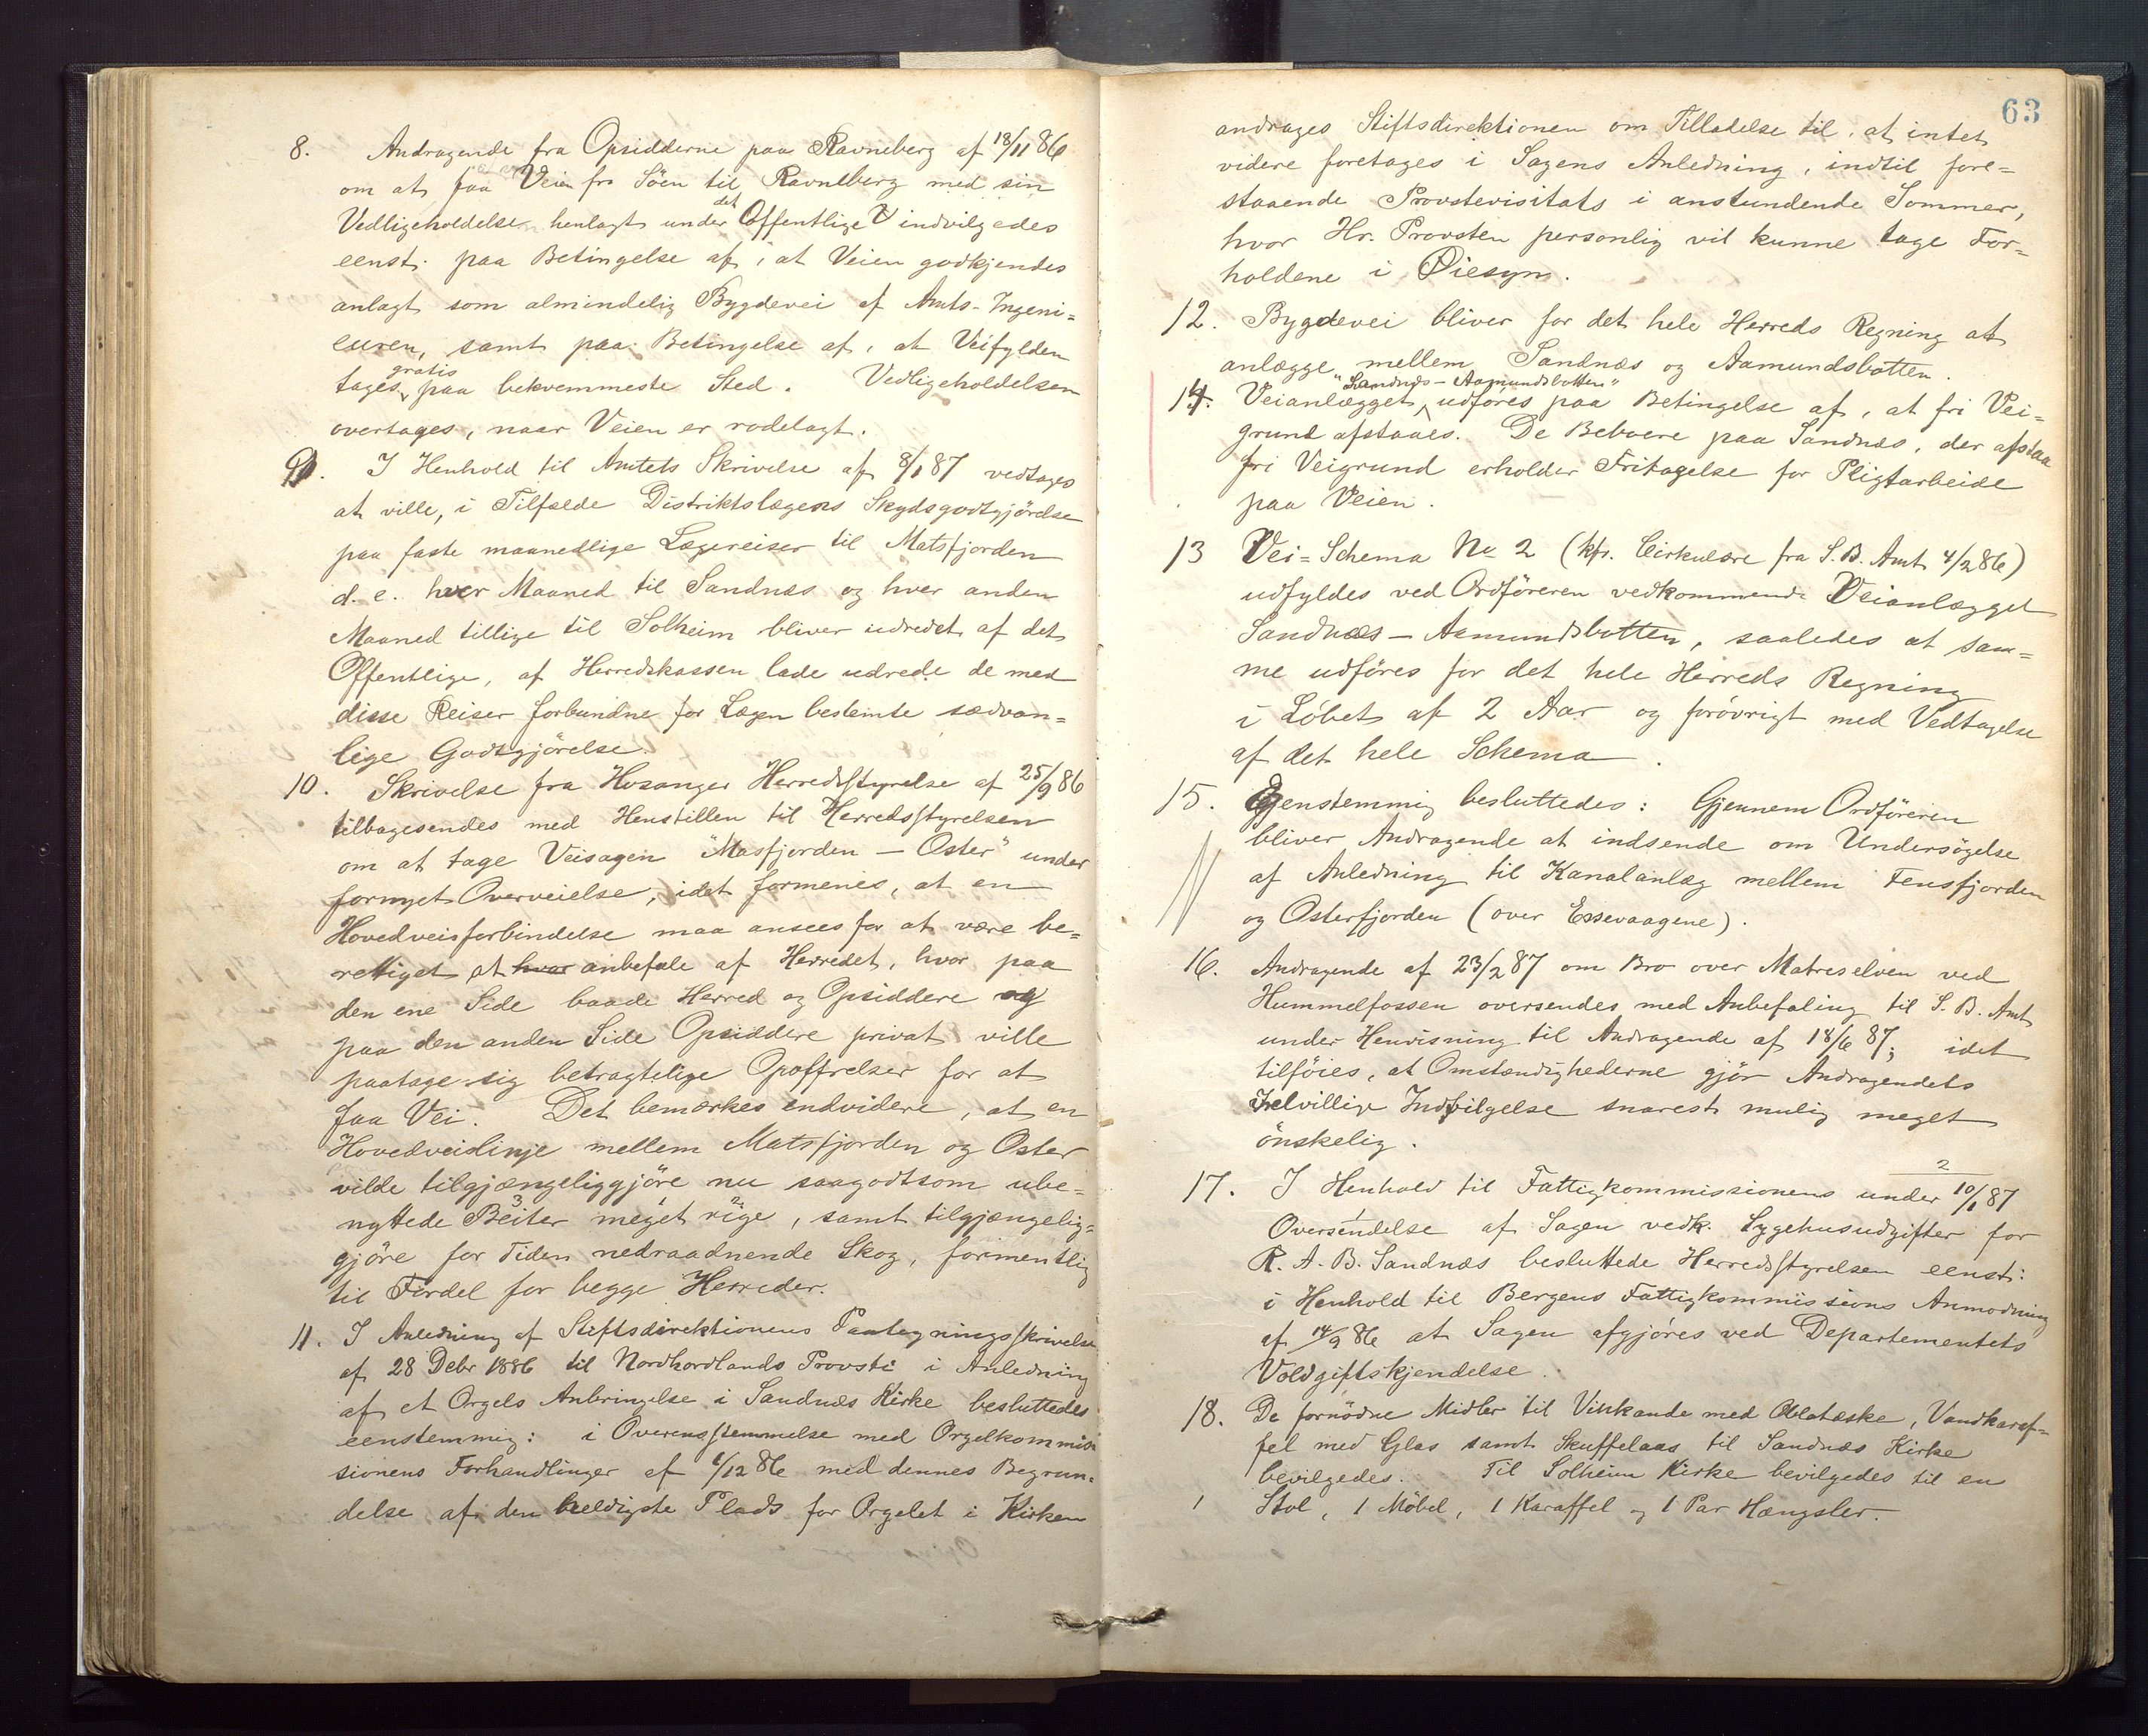 8. Andragende fra Opsidderne paa Ravneberg af 18/11 86
om at faa Veien fra Söen til Ravneberg med sin
Vedligeholdelse henlagt under det Offentlige indvilgedes
eenst. paa Betingelse af, at Veien godkjendes
anlagt som almindelig Bygdevei af Amts-Ingeni=
euren, samt paa Betingelse af, at Veifylden
tages gratis paa bekvemmeste Sted. Vedligeholdelsen
overtages, naar Veien er rodelagt.
9. I Henhold til Amtets Skrivelse af 8/1 87 vedtages
at ville, i Tilfælde Distriktslægens Skydsgodtgjörelse
paa faste maanedlige Lægereiser til Matsfjorden
d. e. hver Maaned til Sandnæs og hver anden
Maaned tillige til Solheim bliver udredet af det
Offentlige, af Herredskassen lade udrede de med
disse Reiser forbundne for Lægen bestemte sædvan=
lige Godtgjörelse.
10. Skrivelse fra Hosanger Herredsstyrelse af 25/9 86
tilbagesendes med Henstillen til Herredsstyrelsen
om at tage Veisagen "Masfjorden — Oster" under
fornyet Overveielse, idet formenes, at en
Hovedveisforbindelse maa ansees for at være be=
rettiget at hvor anbefale af Herredet, hvor paa
den ene Side baade Herred og Opsiddere og
paa den anden Side Opsiddere privat ville
paatage sig betragtelige Opoffrelser for at
faa Vei. Det bemærkes endvidere, at en
Hovedveislinje mellem Matsfjorden og Oster
vilde tilgjængeliggjöre nu saagodtsom ube=
nyttede Beiter meget rige, samt tilgjængelig=
gjöre for Tiden nedraadnende Skog, formentlig
til Fordel for begge Herreder.
11. I Anledning af Stiftsdirektionens Paategningsskrivelse
af 28 Debr 1886 til Nordhordlands Provsti i Anledning
af et Orgels Anbringelse i Sandnæs Kirke besluttedes
eenstemmig: i Overensstemmelse med Orgelkommis
sionens Forhandlinger af 6/12 86 med dennes Begrun=
delse af den heldigste Plads for Orgelet i Kirken
63
andrages Stiftsdirektionen om Tilladelse til, at intet
videre foretages i Sagens Anledning, indtil fore=
staaende Provstevisitats i anstundende Sommer,
hvor Hr. Provsten personlig vil kunne tage For=
holdene i Öiesyn.
12. Bygdevei bliver for det hele Herreds Regning at
anlægge mellem Sandnæs og Aamundsbotten.
14. Veianlægget "Sandnæs — Aamundsbotten" udföres paa Betingelse af, at fri Vei=
grund afstaaes. De Beboere paa Sandnæs, der afstaa
fri Veigrund erholder Fritagelse for Pligtarbeide
paa Veien.
13 Vei=Schema No 2 (kfr. Cirkulære fra S. B. Amt 4/2 86)
udfyldes ved Ordföreren vedkommende Veianlægget
Sandnæs — Aamundsbotten, saaledes at sam=
me udföres for det hele Herreds Regning
i Löbet af 2 Aar og forövrigt med Vedtagelse
af det hele Schema.
15. Eenstemmig besluttedes: Gjennem Ordföreren
bliver Andragende at indsende om Undersögelse
af Anledning til Kanalanlæg mellem Fensfjorden
og Osterfjorden (over Eisevaagene).
16. Andragende af 23/2 87 om Bro over Matreselven ved
Hummelfossen oversendes med Anbefaling til S. B. Amt
under Henvisning til Andragende af 18/6 87; idet
tilföies, at Omstændighederne gjör Andragendets
velvillige Indvilgelse snarest mulig meget
önskelig.
2
17. I Henhold til Fattigkommissionens under 10/1 87
Oversendelse af Sagen vedk. Sygehusudgifter for
R. A. B. Sandnæs besluttede Herredsstyrelsen eenst:
i Henhold til Bergens Fattigkommissions Anmodning
af 14/9 86 at Sagen afgjöres ved Departementets
Voldgiftskjendelse.
18. De fornödne Midler til Vinkande med Oblatæske, Vandkaraf=
fel med Glas samt Skuffelaas til Sandnæs Kirke
bevilgedes. Til Solheim Kirke bevilgedes til en
Stol, 1 Möbel, 1 Karaffel og 1 Par Hængsler.